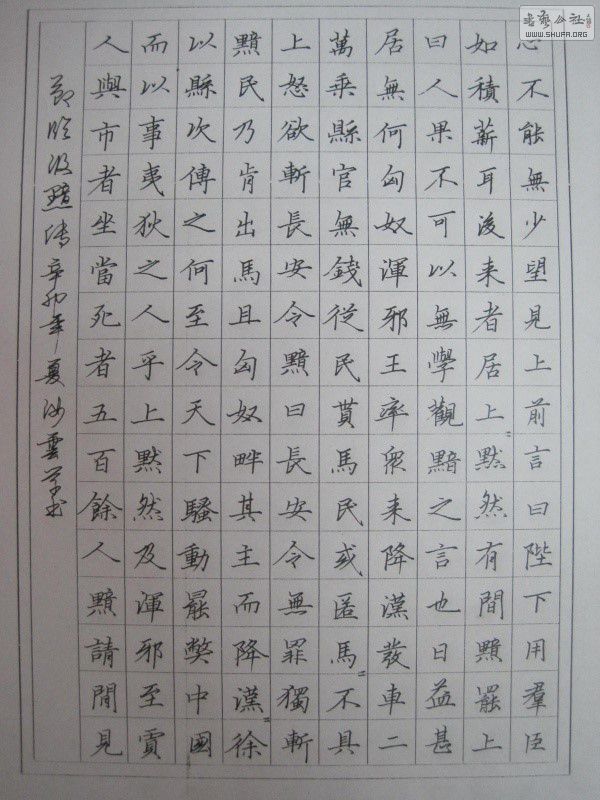 心不能無少望見上前言曰陛下用羣臣
如積薪耳後来者居上〻默然有間黯罷上
曰人果不可以無學觀黯之言也日益甚
居無何匈奴渾邪王率衆来降漢發車二
萬乗縣官無錢從民貰馬民或匿馬〻不具
上怒欲斬長安令黯曰長安令無罪獨斬
黯民乃肯出馬且匈奴畔其主而降漢〻徐
以縣次傳之何至令天下騷動罷獘中國
而以事夷狄之人乎上默然及渾邪至賈
人與市者坐當死者五百餘人黯請間見
節臨汲黯傳辛卯年夏
公社
WWW.SHUFA.ORG